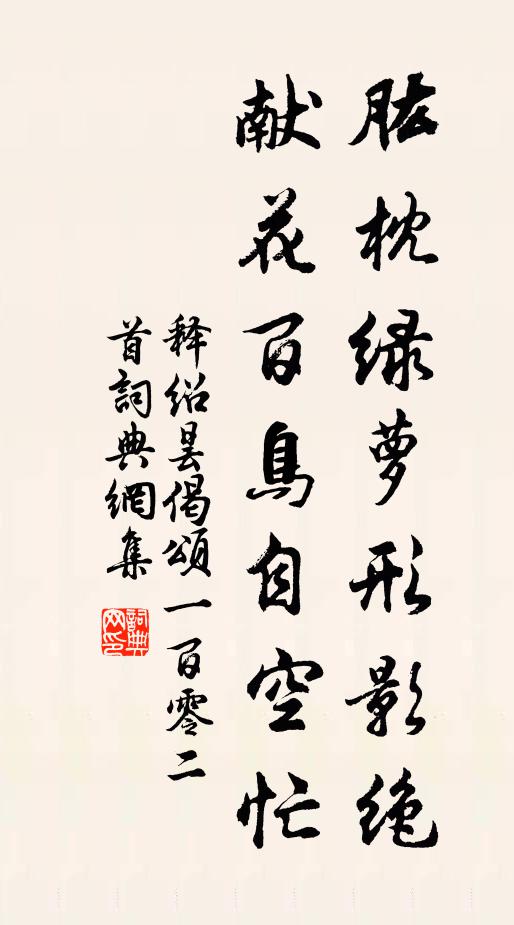 肱枕绿萝形影绝
献花百鸟自空忙
释绍昙偈頌一百零二
首詞典網集
詞典網印